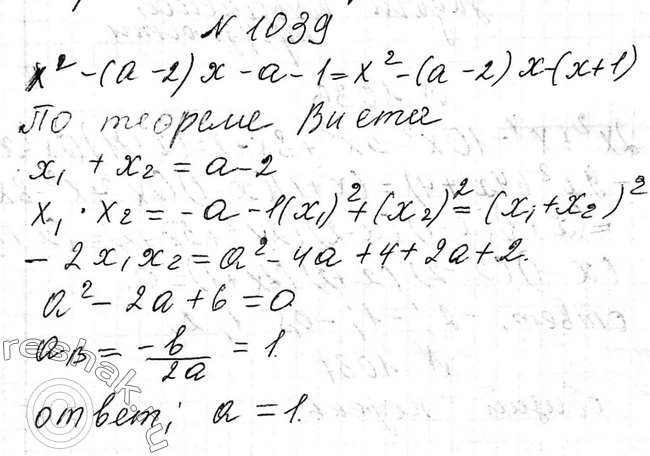 N 1039
x² - (a - 2) x - a - 1 = x² - (a - 2) x - (x + 1)
По теореме Виета
x₁ + x₂ = a - 2
x₁ · x₂ = - a - 1 (x₁)² + (x₂)² = (x₁ + x₂)²
- 2 x₁ x₂ = a² - 4a + 4 + 2a + 2.
a² - 2a + 6 = 0
aв = -b/2a = 1.
ответ; a = 1.
reshak.ru